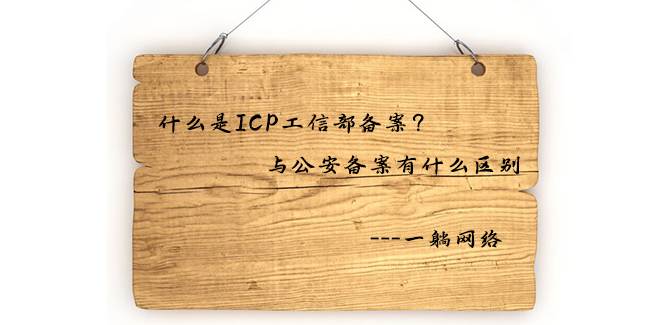 什么是ICP工信部备案？
与公安备案有什么区别
---一躺网络